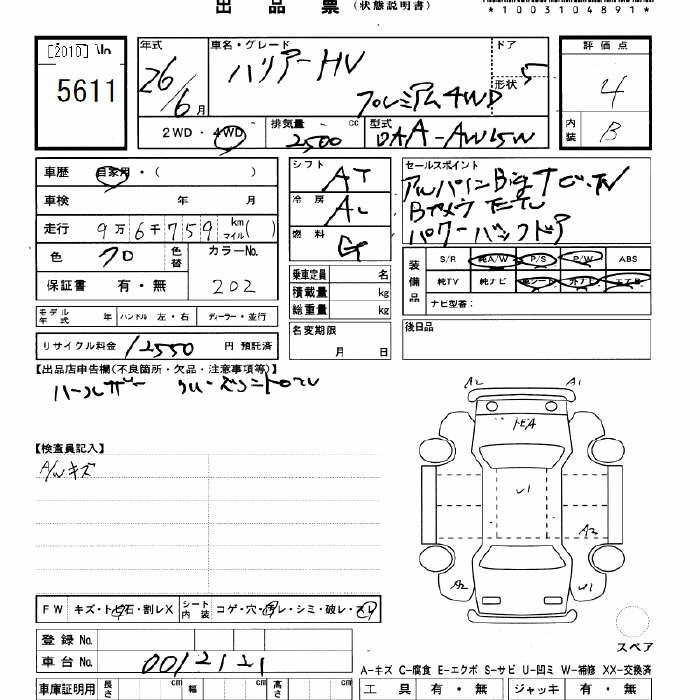 出品票 (状態説明書)
*1003104891*
[2010]
5611
年式 26/6月
車名・グレード ハリアーHV
プレミアム4WD
ドア 5
形状
評価点 4
内装 B
2WD・4WD
排気量 2500 cc
型式 DAA-AW15W
車歴 自家用・( )
車検 年 月
走行 9万6千759 km マイル( )
色 クロ 色替
カラーNo. 202
保証書 有・無
モデル年式 年 ハンドル 左・右 ディーラー・並行
リサイクル料金 12550 円 預託済
シフト AT
冷房 AC
燃料 G
乗車定員 名
積載量 kg
総重量 kg
名変期限
月 日
セールスポイント
アルパインBigナビ・TV
Bカメラ
パワーバックドア
装備品
S/R 純A/W P/S P/W ABS
純TV 純ナビ 革シート 外ナビ エアB
ナビ型番:
後日品
【出品店申告欄(不良箇所・欠品・注意事項等)】
ハーフレザー クルーズコントロール
【検査員記入】
A/Wキズ
A2 A1
トビA
W1
A2
A2 W1
FW キズ・トビ石・割レX
シート内装 コゲ・穴・切レ・シミ・破レ・スレ
スペア
登録No.
車台No. 0012121
A-キズ C-腐食 E-エクボ S-サビ U-凹ミ W-補修 XX-交換済
車庫証明用 長さ cm 幅 cm 高さ cm
工具 有・無 ジャッキ 有・無